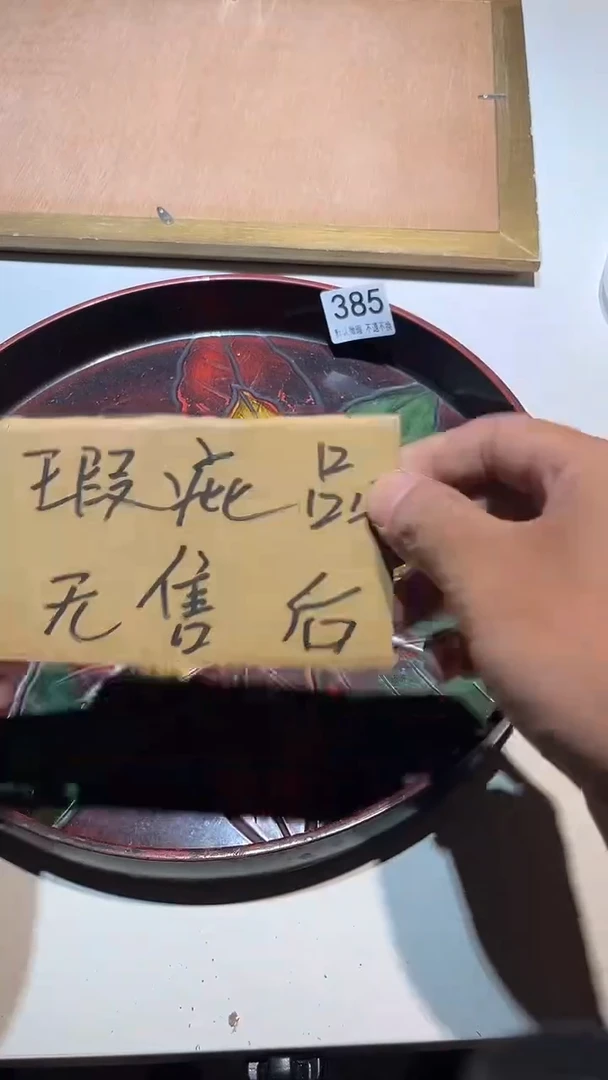 385
瑕疵品
无售后